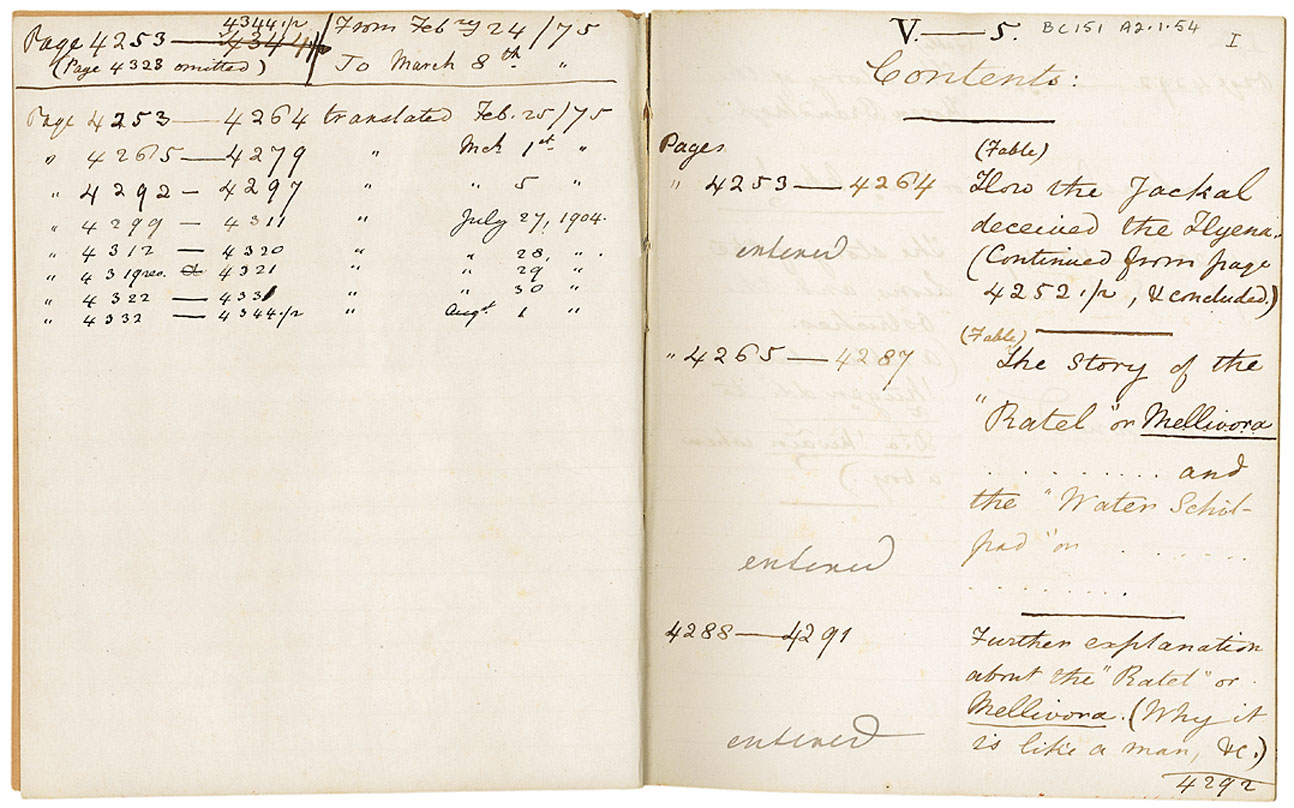 4344½
Page 4253 — 4344½ From Febry 24/75
(Page 4323 omitted) To March 8th "
Page 4253 — 4264 translated Feb. 25/75
" 4265 — 4279 " Mch 1st "
" 4292 — 4297 " " 5 "
" 4299 — 4311 " July 27, 1904.
" 4312 — 4320 " " 28, " .
" 4319 rev. & 4321 " " 29 "
" 4322 — 4331 " " 30 "
" 4332 — 4344½ " Augst 1 "
V. — 5. BC151 A2.1.54 I
Contents:
Pages (Fable)
" 4253 — 4264 How the Jackal
deceived the Hyena.
entered (Continued from page
4252½, & concluded.)
(Fable)
" 4265 — 4287 The Story of the
"Ratel" or Mellivora
. . . . . . . . . . and
the "Water Schil-
pad" or . . . . . . .
entered
. . . . . . . .
4288 — 4291 Further explanation
about the "Ratel" or
Mellivora. (Why it
entered is like a man, &c.)
4292